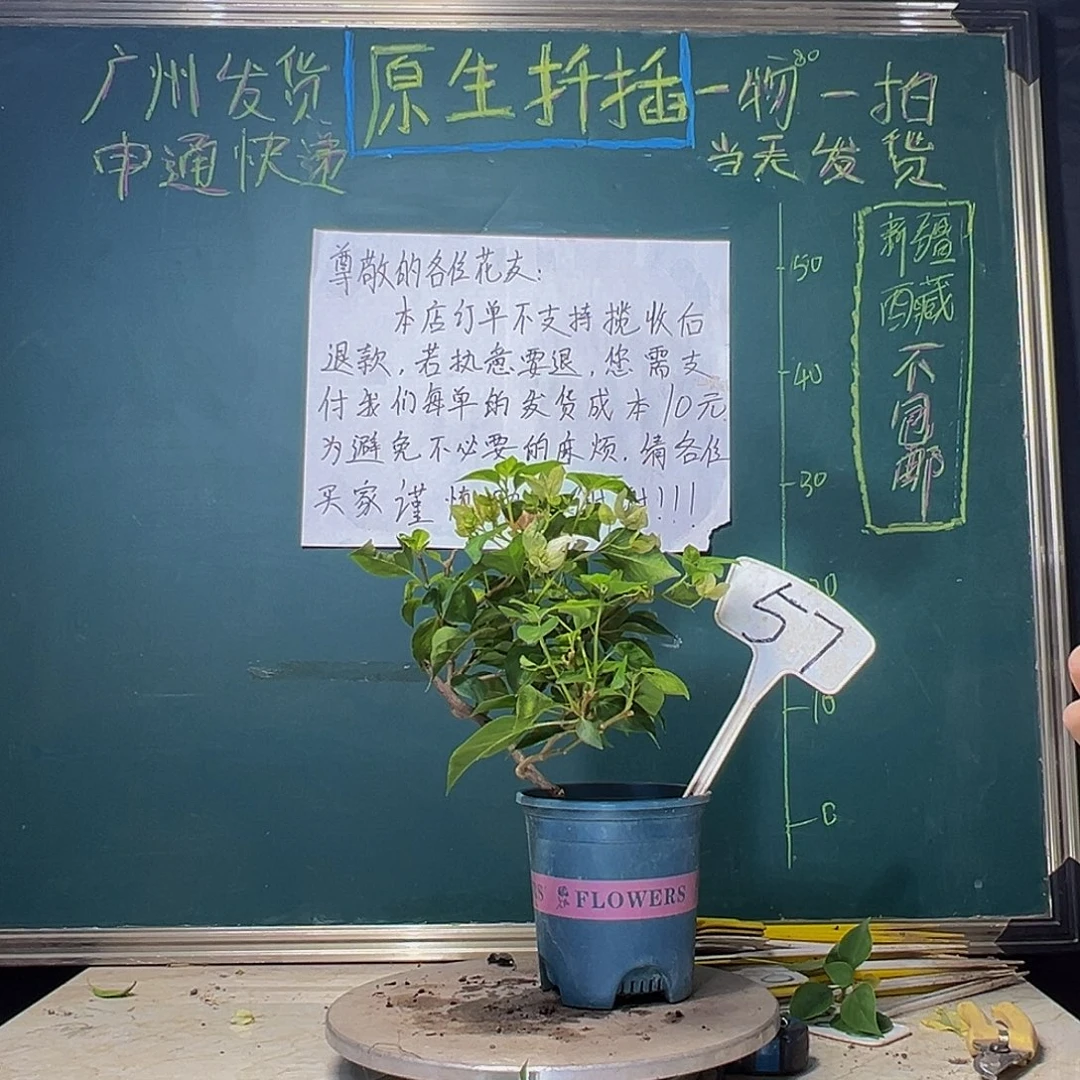 广州发货
申通快递
原生扦插
一物一拍
当天发货
新疆
西藏
不
包
邮
尊敬的各位花友：
本店订单不支持揽收后
退款，若执意要退，您需支
付我们每单的发货成本10元
为避免不必要的麻烦，请各位
买家谨
!!!
50
40
30
20
10
0
57
FLOWERS